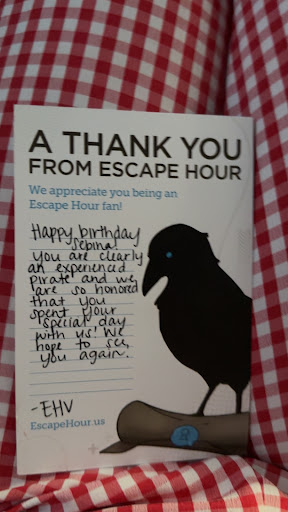 A THANK YOU
FROM ESCAPE HOUR
We appreciate you being an
Escape Hour fan!
Happy birthday
Sebina!
you are clearly
an experienced
pirate and we
are so honored
that you
spent your
special day
with us! We
hope to see
you again.
-EHV
EscapeHour.us